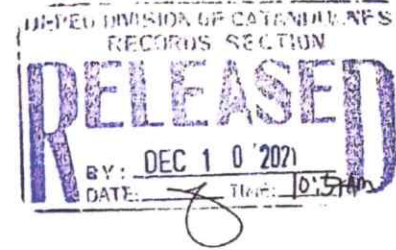 DEPED DIVISION OF CATANDUANES
RECORDS SECTION
RELEASED
BY: DEC 10 2021
DATE: TIME: 10:57AM